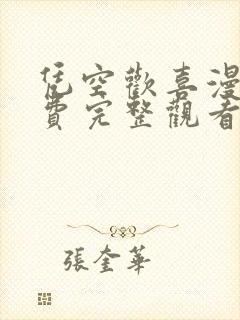 凭空歡喜漫
費完整觀看
張奎華